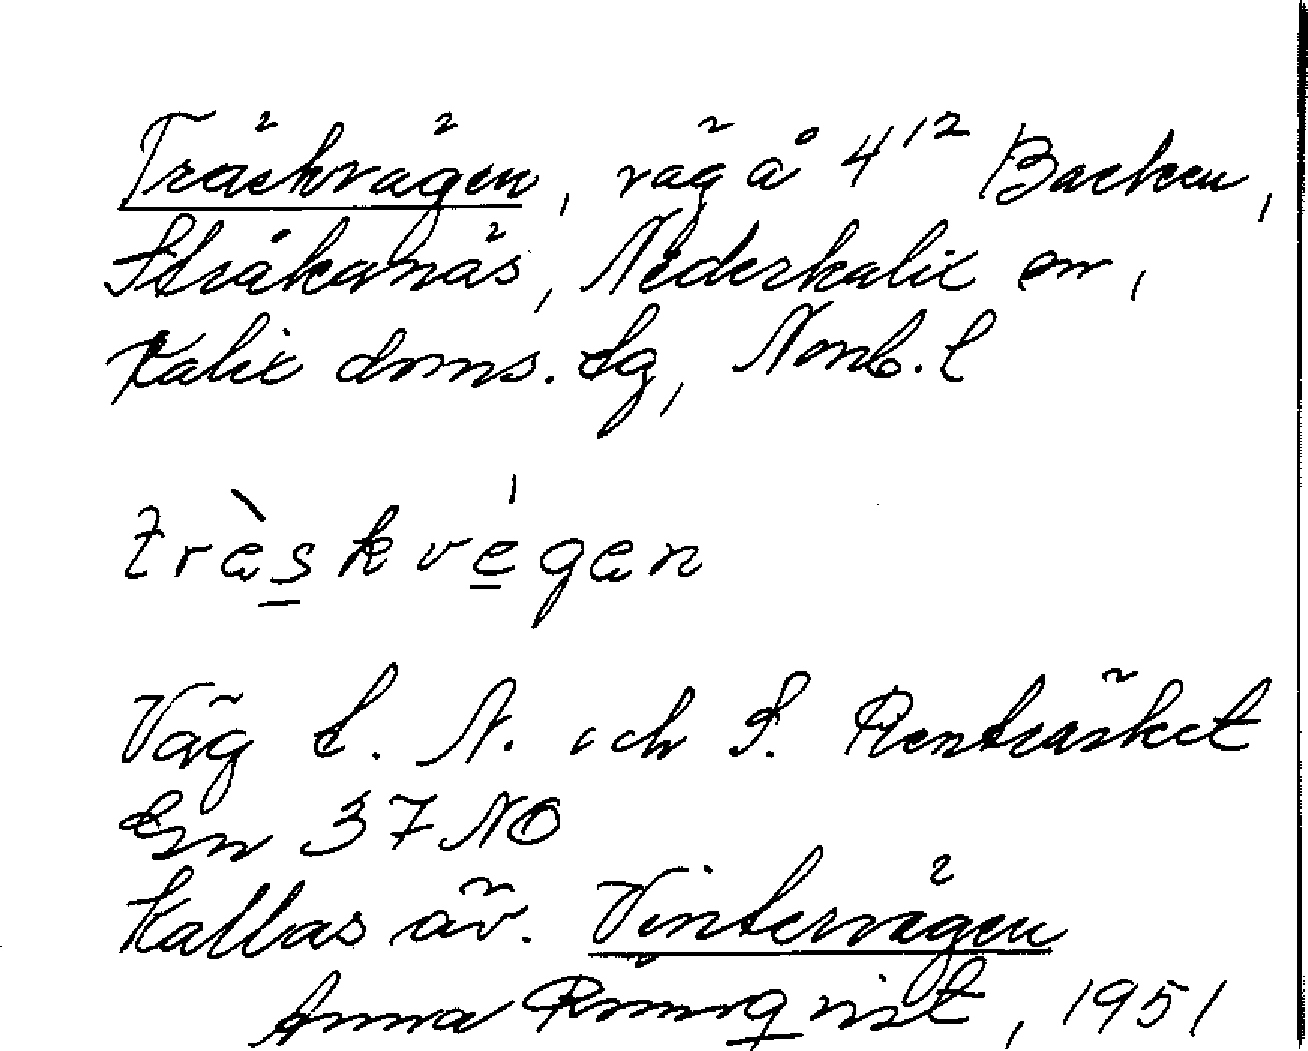 Träskvägen, väg å 4¹² Backen,
Stråkanäs, Nederkalix sn,
Kalix doms. tg, Norrb. l
träskvegen
Väg t. N. och S. Renträsket
Em 37 NO
Kallas äv. Vintervägen
Anna Rönnqvist, 1951